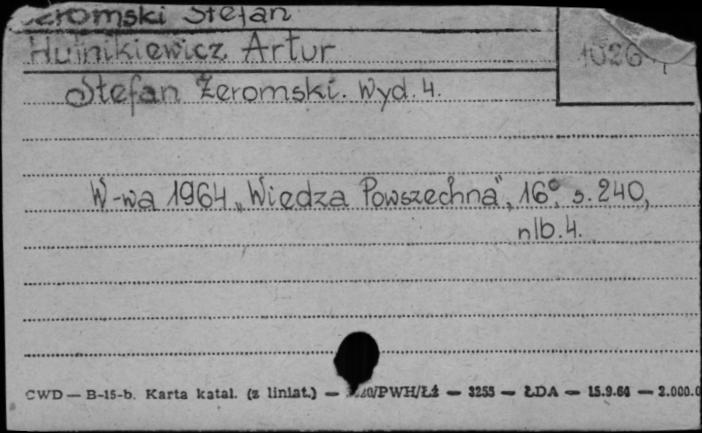 Żeromski Stefan
Hutnikiewicz Artur
Stefan Żeromski. Wyd. 4.
W-wa 1964 „Wiedza Powszechna", 16°, s. 240,
nlb. 4.
CWD — B-15-b. Karta katal. (z liniat.) — /PWH/Łź — 3255 — ŁDA — 15.9.64 —